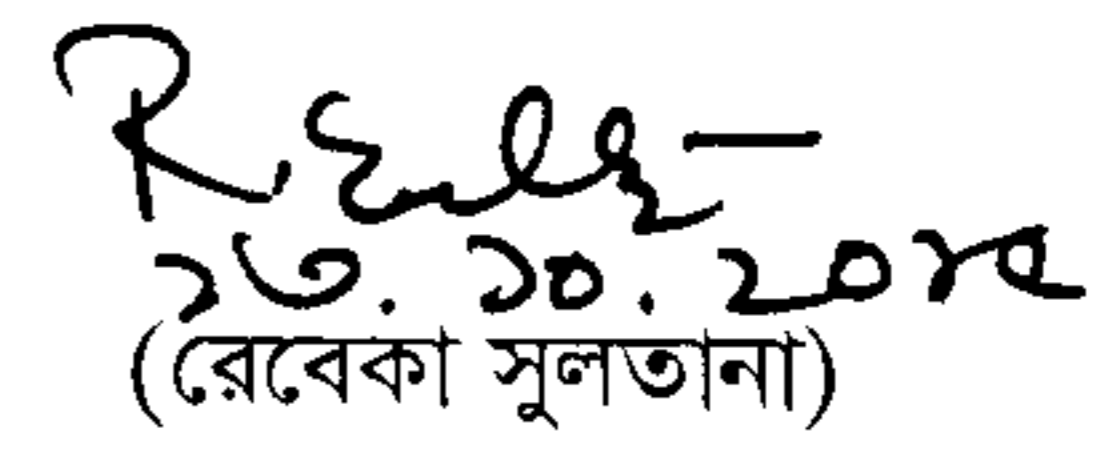 ২৩. ১০. ২০২৫
(রেবেকা সুলতানা)